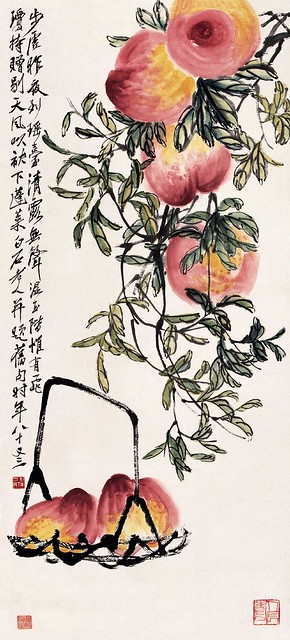 步虛昨夜到瑤臺清露無聲濕玉階惟有飛
瓊持贈別天風吹袂下蓬萊白石老人并題舊句時年八十又三